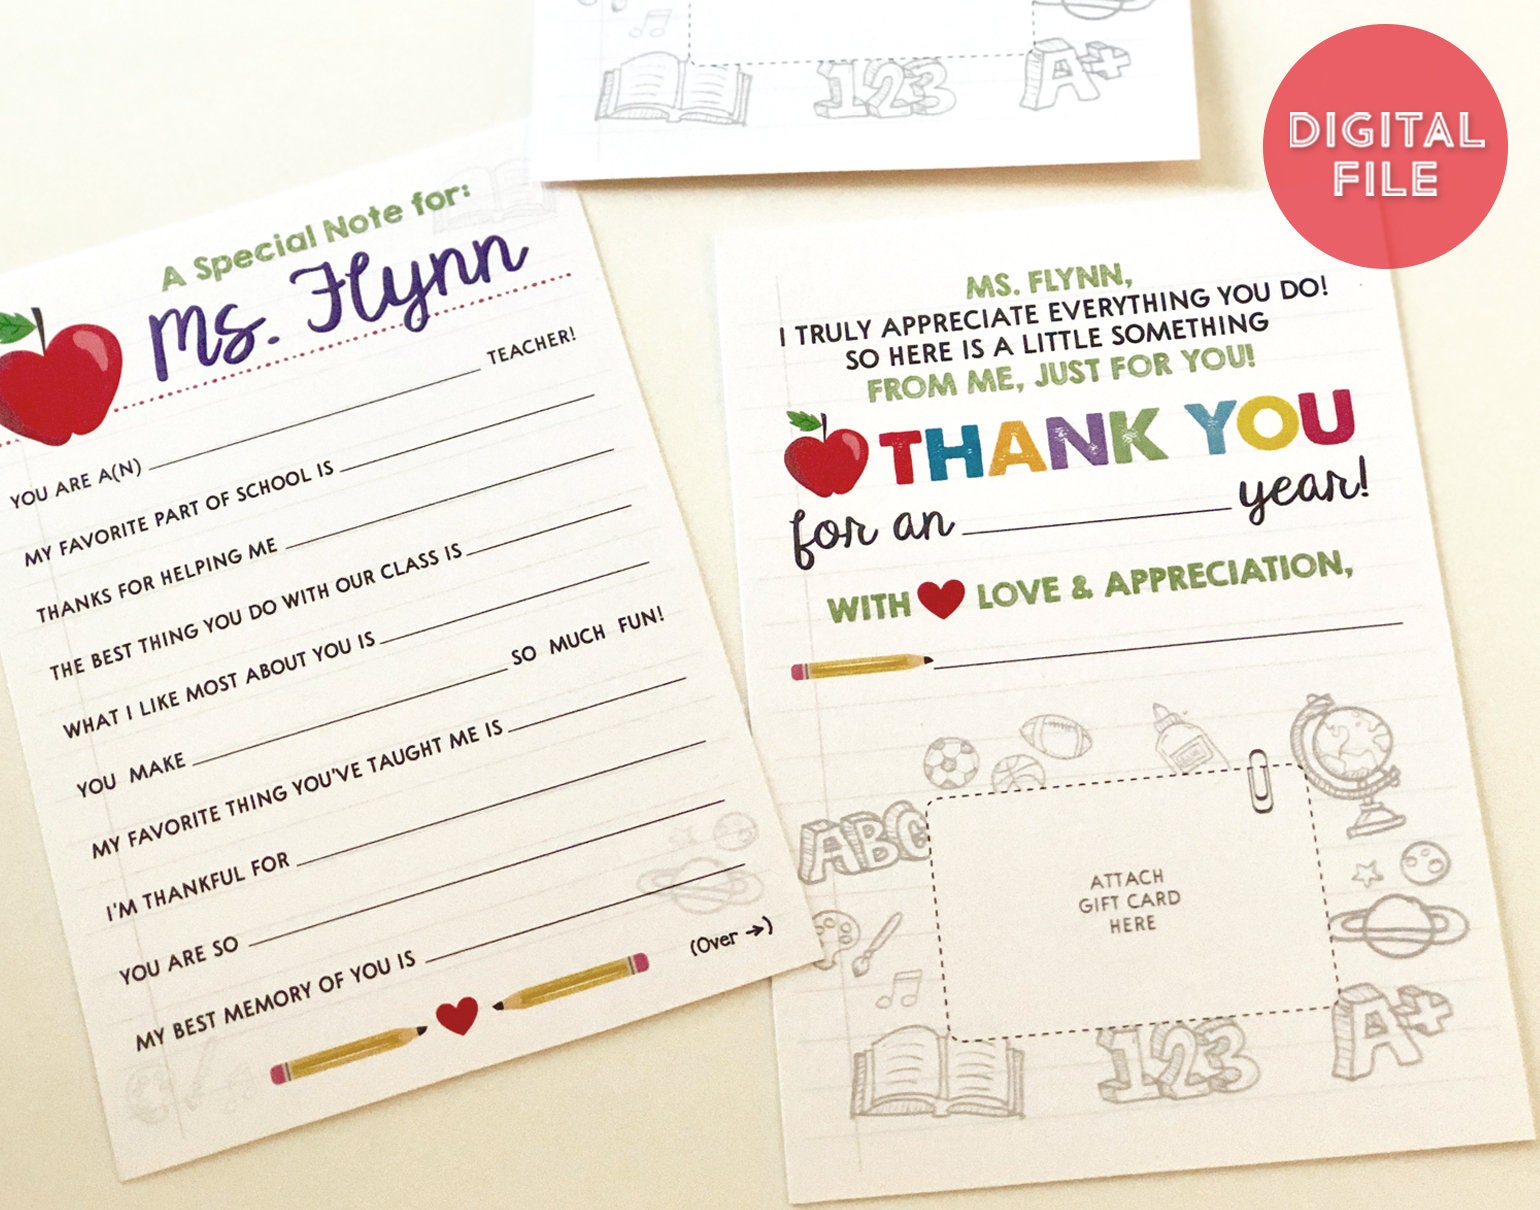 123
A+
DIGITAL
FILE
A Special Note for:
Ms. Flynn
YOU ARE A(N) TEACHER!
MY FAVORITE PART OF SCHOOL IS
THANKS FOR HELPING ME
THE BEST THING YOU DO WITH OUR CLASS IS
WHAT I LIKE MOST ABOUT YOU IS
YOU MAKE SO MUCH FUN!
MY FAVORITE THING YOU'VE TAUGHT ME IS
I'M THANKFUL FOR
YOU ARE SO
MY BEST MEMORY OF YOU IS
(Over →)
MS. FLYNN,
I TRULY APPRECIATE EVERYTHING YOU DO!
SO HERE IS A LITTLE SOMETHING
FROM ME, JUST FOR YOU!
THANK YOU
for an year!
WITH ❤ LOVE & APPRECIATION,
ABC
ATTACH
GIFT CARD
HERE
123
A+